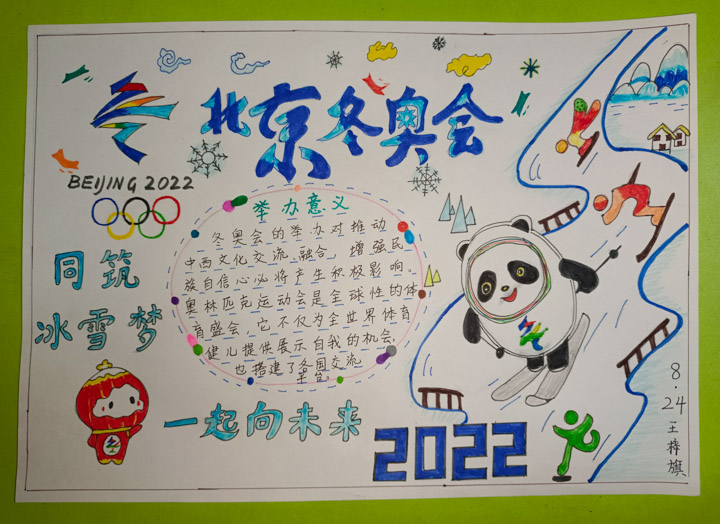 北京冬奥会
BEIJING 2022
举办意义
冬奥会的举办对推动
中西文化交流、融合,增强民
族自信心必将产生积极影响。
奥林匹克运动会是全球性的体
育盛会,它不仅为全世界体育
健儿提供展示自我的机会,
也搭建了各国交流
平台。
同筑
冰雪梦
一起向未来
2022
8·24
王梓旗